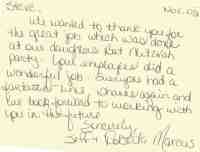 Steve, Nov. 09
We wanted to thank you for
the great job which was done
at our daughters Bat Mitzvah
party. Your employees did a
wonderful job. Everyone had a
fantastic time. Thanks again and
we look forward to working with
you in the future
Sincerely,
Jeff & Roberta Marcus